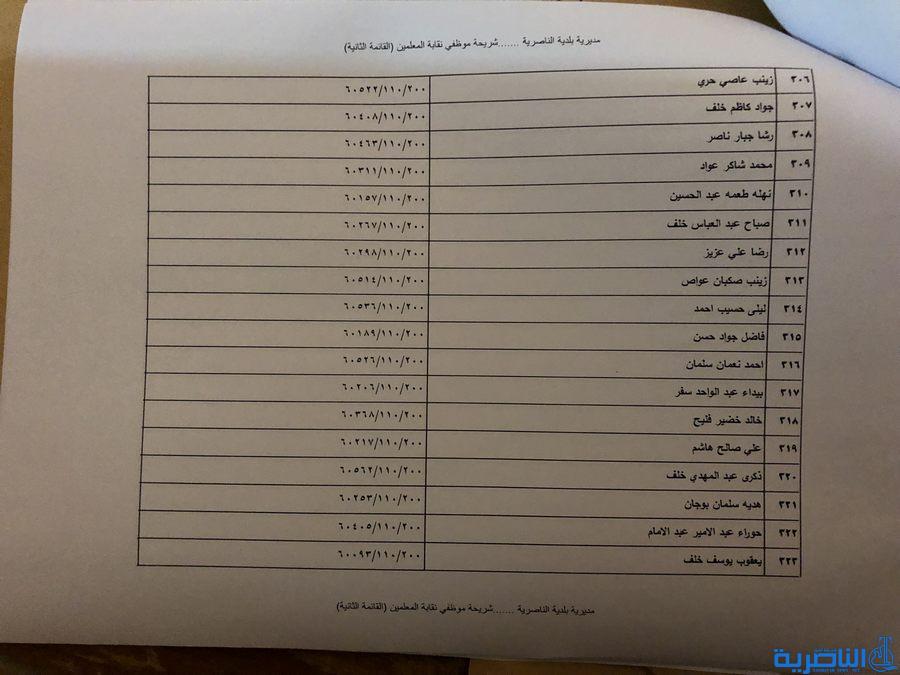 مديرية بلدية الناصرية .......شريحة موظفي نقابة المعلمين (القائمة الثانية)
٣٠٦ زينب عاصي حري ٦٠٥٢٢/١١٠/٢٠٠
٣٠٧ جواد كاظم خلف ٦٠٤٠٨/١١٠/٢٠٠
٣٠٨ رشا جبار ناصر ٦٠٤٦٣/١١٠/٢٠٠
٣٠٩ محمد شاكر عواد ٦٠٣١١/١١٠/٢٠٠
٣١٠ نهله طعمه عبد الحسين ٦٠١٥٧/١١٠/٢٠٠
٣١١ صباح عبد العباس خلف ٦٠٢٦٧/١١٠/٢٠٠
٣١٢ رضا علي عزيز ٦٠٢٩٨/١١٠/٢٠٠
٣١٣ زينب صكبان عواص ٦٠٥١٤/١١٠/٢٠٠
٣١٤ ليلى حسيب احمد ٦٠٥٣٦/١١٠/٢٠٠
٣١٥ فاضل جواد حسن ٦٠١٨٩/١١٠/٢٠٠
٣١٦ احمد نعمان سلمان ٦٠٥٢٦/١١٠/٢٠٠
٣١٧ بيداء عبد الواحد سفر ٦٠٢٠٦/١١٠/٢٠٠
٣١٨ خالد خضير فليح ٦٠٣٦٨/١١٠/٢٠٠
٣١٩ علي صالح هاشم ٦٠٢١٧/١١٠/٢٠٠
٣٢٠ ذكرى عبد المهدي خلف ٦٠٥٦٢/١١٠/٢٠٠
٣٢١ هديه سلمان بوجان ٦٠٢٥٣/١١٠/٢٠٠
٣٢٢ حوراء عبد الامير عبد الامام ٦٠٤٠٥/١١٠/٢٠٠
٣٢٣ يعقوب يوسف خلف ٦٠٠٩٣/١١٠/٢٠٠
مديرية بلدية الناصرية .......شريحة موظفي نقابة المعلمين (القائمة الثانية)
الناصرية